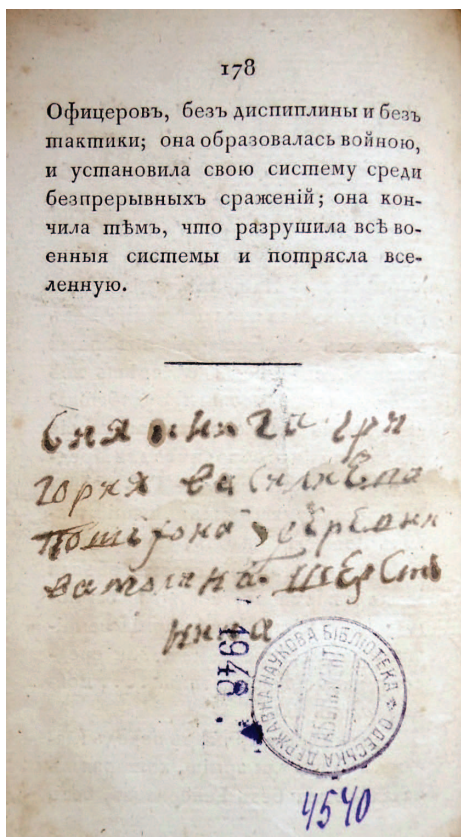 178
Офицеровъ, безъ диспиплины и безъ
тактики; она образовалась войною,
и установила свою систему среди
безпрерывныхъ сраженій; она кон-
чила тѣмъ, что разрушила всѣ во-
енныя системы и потрясла все-
ленную.
Сия книга гри
гория василиева
1948
ОДЕСЬКА ДЕРЖАВНА НАУКОВА БІБЛІОТЕКА
4540